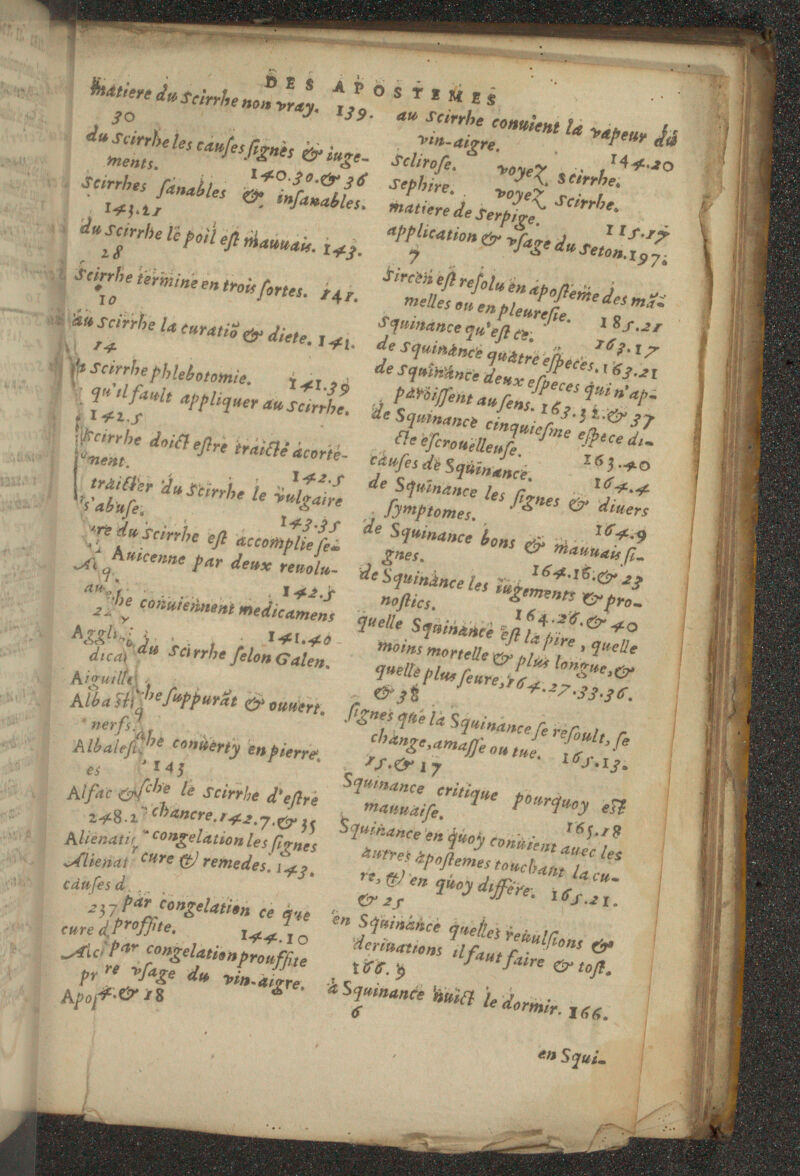 DES APOSTEMES
Matiere du Scirrhe non vray. 139.
30
du Scirrhe les causes signes & iuge-
ments. 140.30.& 36
Scirrhes sanables & insanables.
143.21
du Scirrhe le poil est mauuais. 143.
28
Scirrhe terminé en trois sortes. 141.
10
au Scirrhe la curatiõ & diete. 141.
14
Scirrhe phlebotomie. 141.39
qu'il fault appliquer au Scirrhe.
142.5
Scirrhe doict estre traicté acorte-
ment. 142.5
traicter du Scirrhe le vulgaire
s'abuse. 143.35
re du Scirrhe est accomplie se-
Auicenne par deux reuolu-
142.5
he conuiennent medicamens
141.40
du Scirrhe selon Galen.
he suppurãt & ouuert.
he conuerty en pierre.
143
che le Scirrhe d'estre
chancre. 142.7.& 35
congelation les signes
cure & remedes. 143.
par congelation ce que
proffite. 144.10
par congelation prouffite
re vsage du vin-aigre.
4.& 18
au Scirrhe conuient la vapeur du
vin-aigre. 144.20
Sclirose. voyeZ Scirrhe.
Sephire. voyeZ Scirrhe.
matiere de Serpige. 115.17
application & vsage du Seton. 197.
7
Sircen est resolu en aposteme des ma-
melles ou en pleuresie. 185.21
Squinance qu'est ce. 163.17
de Squinance quatre especes. 163.21
de Squinance deux especes qui n'ap-
paroissent au sens. 163.32.& 37
de Squinance cinquiesme espece di-
cte escrouelleuse. 163.40
causes de Squinance. 164.4
de Squinance les signes & diuers
symptomes. 164.9
de Squinance bons & mauuais si-
gnes. 164.16.& 23
de Squinance les iugements & pro-
nostics. 164.26.& 40
quelle Squinance est la pire, quelle
moins mortelle & plus longue, &
quelle plus seure, 164.27.33.36.
& 38
signes que la Squinance se resoult, se
change, amasse ou tue. 165.13.
15.& 17
Squinance critique pourquoy est
mauuaise. 165.18
Squinance en quoy conuient auec les
autres apostemes touchant la cu-
re, & en quoy differe. 165.21.
& 25
en Squinance quelles reuulsions &
deriuations il faut faire & tost.
166.9
à Squinance nuict le dormir. 166.
6
en Squi-